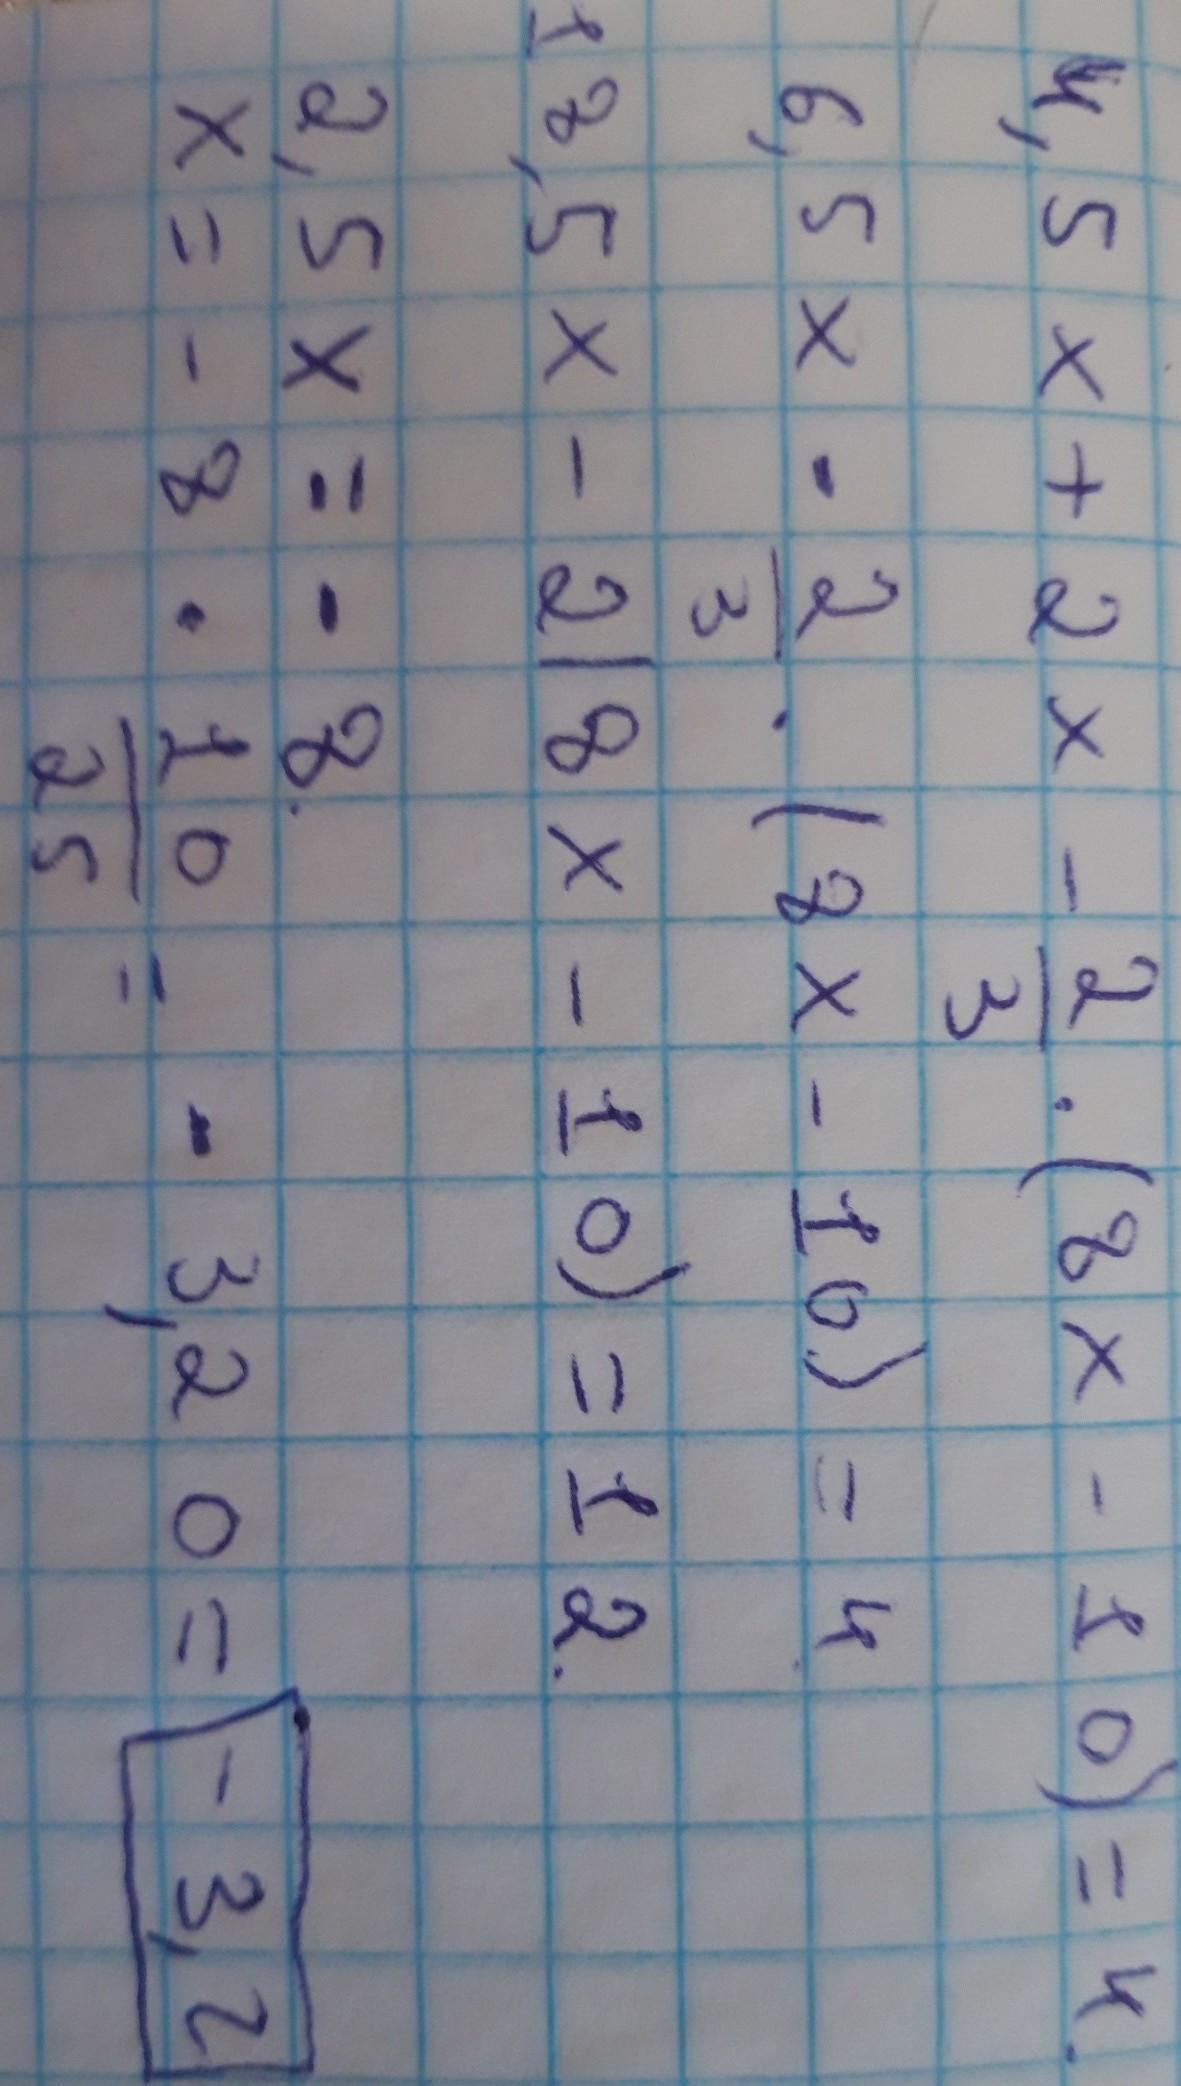 4,5x+2x-2/3·(8x-10)=4.
6,5x-2/3·(8x-10)=4
18,5x-2(8x-10)=12.
2,5x=-8.
x=-8·10/25=-3,20=-3,2